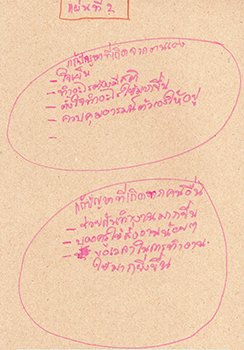 แผ่นที่ 2
แก้ปัญหาที่เกิดจากตนเอง
- ใจเย็น
- ทำอะไรต้องมีสติ
- ตั้งใจทำอะไรให้มากขึ้น
- ควบคุมอารมณ์ตัวเองให้อยู่
-
แก้ปัญหาที่เกิดจากคนอื่น
- ช่วยกันทำงานมากขึ้น
- ให้ส่งงานน้อยๆ
- เวลาในการทำงาน
ให้มากยิ่งขึ้น